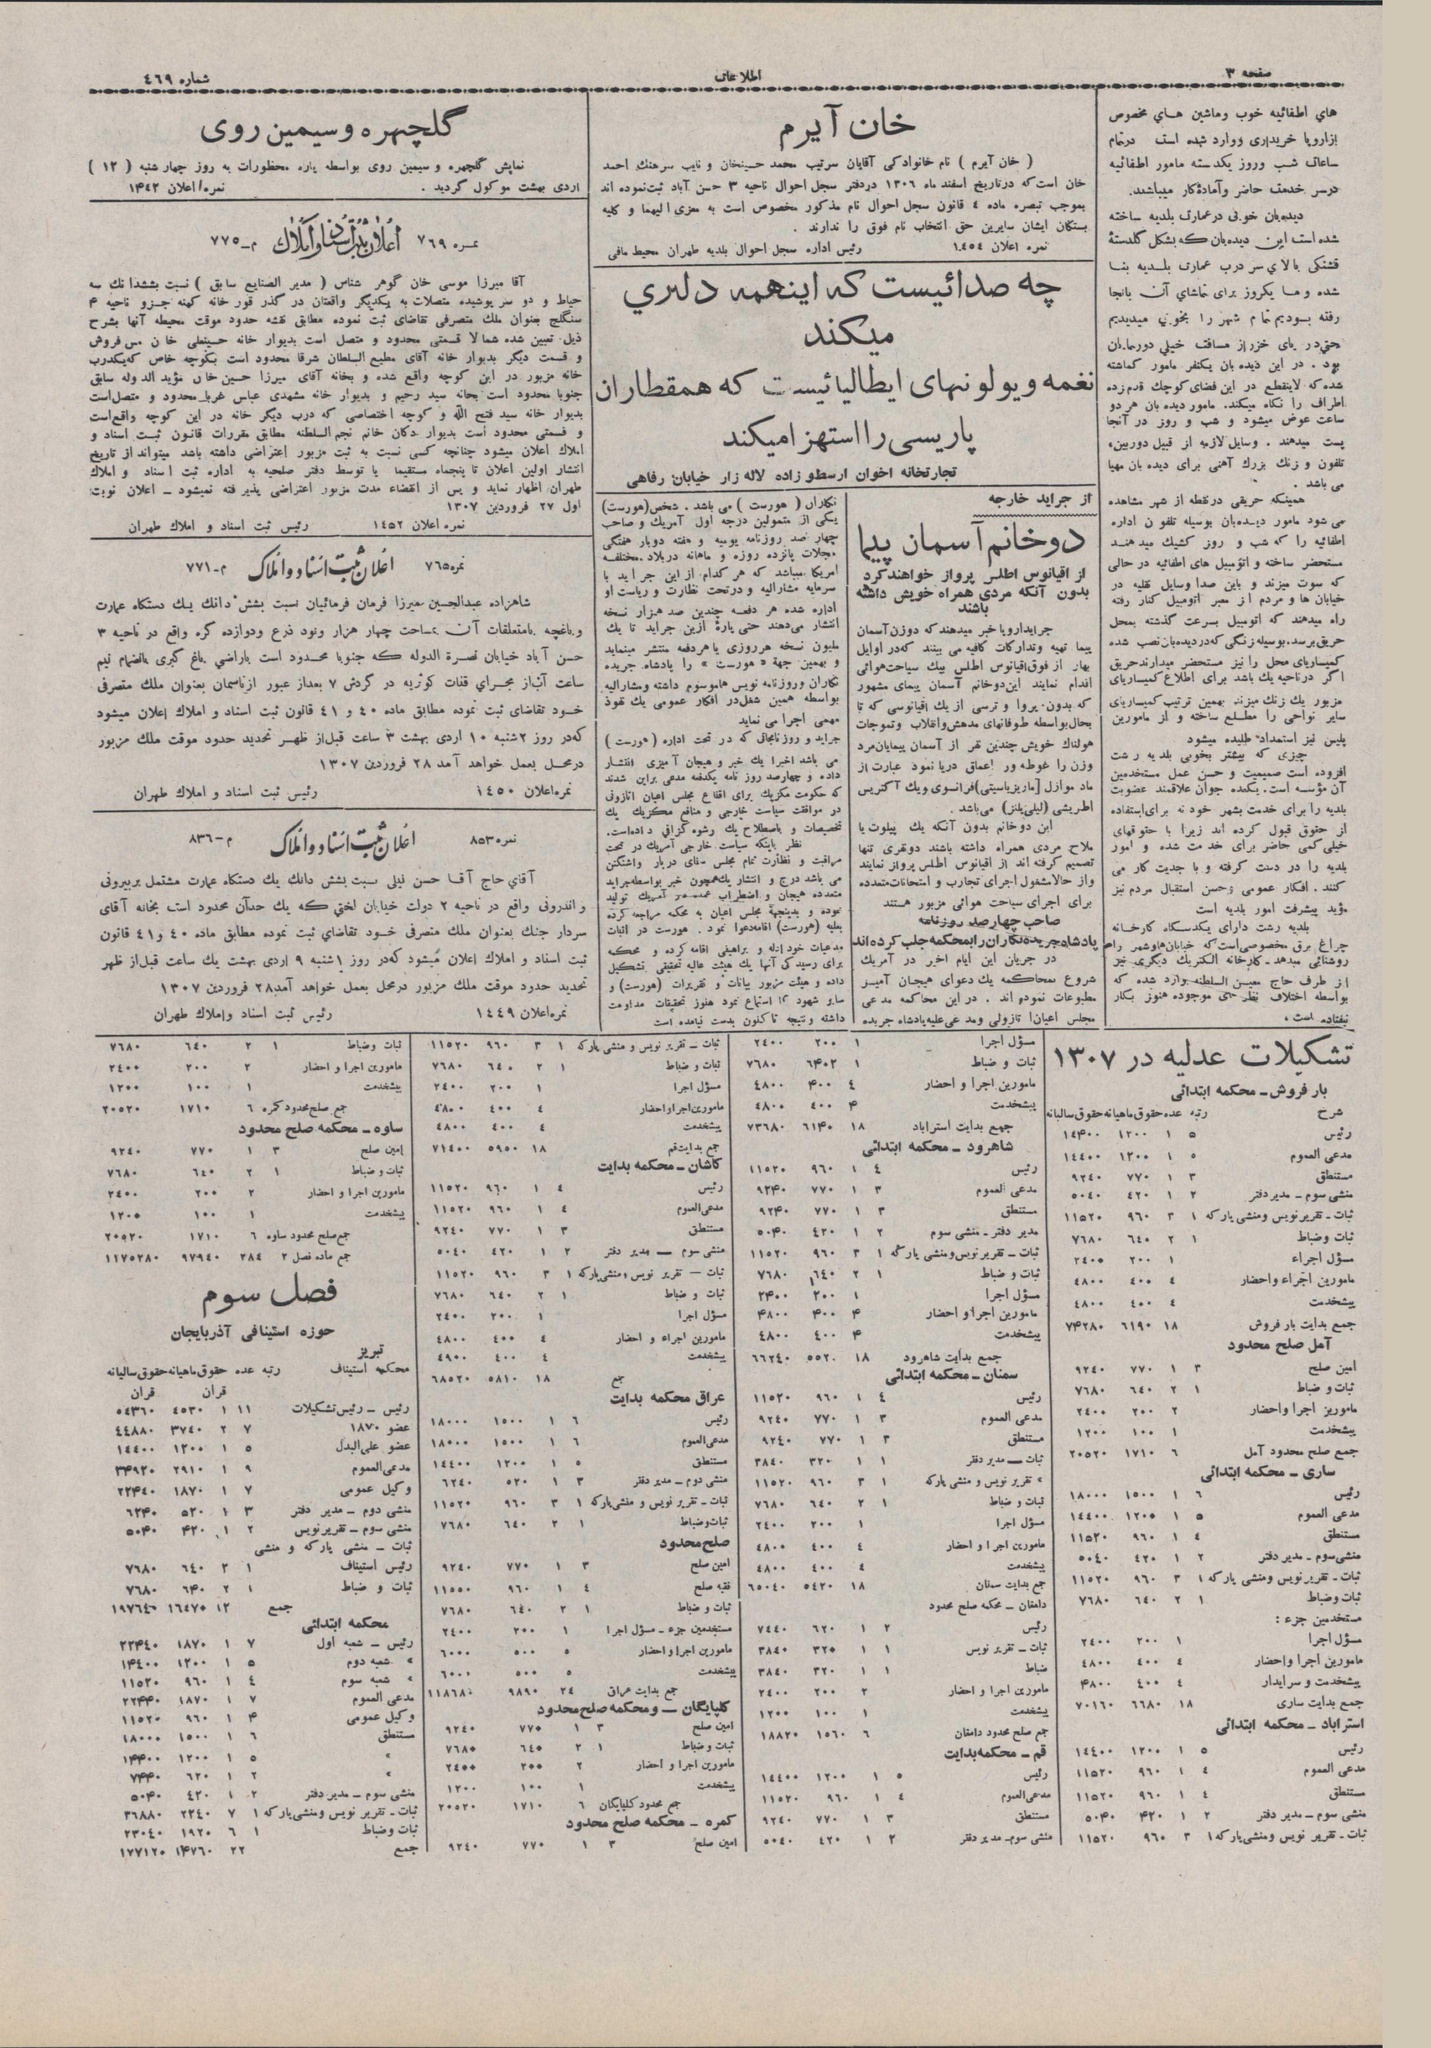 صفحه ۳
اطلاعات
شماره ٤٦٩
های اطفائیه خوب و ماشین های مخصوص
ازاروپا خریداری ووارد شده است درتمام
ساعات شب وروز یکدسته مامور اطفائیه
درسر خدمت حاضر وآمادهٔکار میباشند.
دیده‌بان خوبی درعمارت بلدیه ساخته
شده است این دیده‌بان که بشکل گلدستهٔ
قشنگی بالای سر درب عمارت بلدیه بنا
شده و ما یکروز برای تماشای آن بانجا
رفته بودیم تمام شهر را بخوبی میدیدیم
بود . در این دیده بان یکنفر مامور گماشته
شده که لاینقطع در این فضای کوچک قدم زده
اطراف را نگاه میکند. مامور دیده بان هر دو
ساعت عوض میشود و شب و روز در آنجا
پست میدهند . وسایل لازمه از قبیل دوربین،
تلفون و زنک بزرك آهنی برای دیده بان مهیا
می باشد .
همینکه حریقی درنقطه از شهر مشاهده
می شود مامور دیده‌بان بوسیله تلفون اداره
اطفائیه را که شب و روز کشیك میدهند
مستحضر ساخته و اتومبیل های اطفائیه در حالی
که سوت میزند و باین صدا وسایل نقلیه در
خیابان ها و مردم از معبر اتومبیل کنار رفته
راه میدهند که اتومبیل بسرعت گذشته بمحل
حریق برسد. بوسیله زنگی که دردیده‌بان نصب شده
کمیساریای محل را نیز مستحضر میدارند حریق
اگر درناحیه یك باشد برای اطلاع کمیساریای
مزبور یك زنك میزند بهمین ترتیب کمیساریای
سایر نواحی را مطلع ساخته و از مامورین
پلیس نیز استمداد طلبیده میشود
چیزی که بیشتر بخوبی بلدیه رشت
افزوده است صمیمیت و حسن عمل مستخدمین
آن مؤسسه است. یکعده جوان علاقمند عضویت
بلدیه را برای خدمت بشهر خود نه برای‌استفاده
از حقوق قبول کرده اند زیرا با حقوقهای
خیلی‌کمی حاضر برای خدمت شده و امور
بلدیه را در دست گرفته و با جدیت کار می
کنند . افکار عمومی وحسن استقبال مردم نیز
مؤید پیشرفت امور بلدیه است
بلدیه رشت دارای یکدستگاه کارخانه
چراغ برق مخصوصی است که خیابان‌هاوشهر را
روشنائی میدهد کارخانه الکتریك دیگری نیز
از طرف حاج معین السلطنه وارد شده که
بواسطه اختلاف نظر های موجوده هنوز بکار
نیفتاده است .
خان آیرم
( خان آیرم ) نام خانوادکی آقایان سرتیپ محمد حسینخان و نایب سرهنك احمد
خان است که درتاریخ اسفند ماه ۱۳۰۶ دردفتر سجل احوال ناحیه ۳ حسن آباد ثبت‌نموده اند
بموجب تبصره ماده ٤ قانون سجل احوال نام مذکور مخصوص است به معزی الیهما و کلیه
بستکان ایشان سایرین حق انتخاب نام فوق را ندارند .
نمره اعلان ۱٤٥٤ رئیس اداره سجل احوال بلدیه طهران محیط مافی
چه صدائیست که اینهمه دلبری
میکند
نغمه ویولونهای ایطالیائیست که همقطاران
پاریسی را استهزا میکند
تجارتخانه اخوان ارسطو زاده لاله زار خیابان رفاهی
از جراید خارجه
دو خانم آسمان پیما
از اقیانوس اطلس پرواز خواهند کرد
بدون آنکه مردی همراه خویش داشته
باشند
جرایداروپا خبر میدهند که دوزن آسمان
پیما تهیه وتدارکات کافیه می بینند که‌در اوایل
بهار از فوق اقیانوس اطلس بیك سیاحت هوائی
اقدام نمایند این دوخانم آسمان پیمای مشهور
که بدون پروا و ترسی از یك اقیانوسی که تا
بحال بواسطه طوفانهای مدهش وانقلاب وتموجات
هولناك خویش چندین نفر از آسمان پیمایان‌مرد
وزن را غوطه ور اعماق دریا نمود عبارت از
ماد موازل [ماریزباستی] فرانسوی ویك آکتریس
اطریشی (لیلی‌یلنز) می‌باشد .
این دوخانم بدون آنکه یك پیلوت یا
ملاح مردی همراه داشته باشند دونفری تنها
تصمیم گرفته اند از اقیانوس اطلس پرواز نمایند
و از حالا مشغول اجرای تجارب و امتحانات متعدده
برای اجرای سیاحت هوائی مزبور هستند
صاحب چهارصد روزنامه
پادشاه جریده نگاران رابمحکمه جلب کرده‌اند
در جریان این ایام اخیر در آمریك
شروع بمحاکمه یك دعوای هیجان آمیز
مطبوعات نموده اند . در این محاکمه مدعی
مجلس اعیان اتازونی ومدعی علیه پادشاه جریده
نکاران ( هورست ) می باشد . شخص (هورست)
یکی از متمولین درجه اول آمریك و صاحب
چهار صد روزنامه یومیه و هفته دوبار هفتگی
مجلات پانزده روزه و ماهانه دربلاد مختلفه
امریکا میباشد که هر کدام از این جراید با
سرمایه مشارالیه و درتحت نظارت و ریاست او
اداره شده هر دفعه چندین صد هزار نسخه
انتشار می‌دهند حتی پارهٔ ازین جراید تا یك
ملیون نسخه هرروزی یا هردفعه منتشر مینماید
و بهمین جهة «هورست» را پادشاه جریده
نگاران وروزنامه نویس هاموسوم داشته ومشارالیه
بواسطه همین شغل‌در افکار عمومی یك نفوذ
مهمی اجرا می نماید
جراید و روزنامجاتی که در تحت اداره (هورست)
می باشد اخیرا یك خبر و هیجان آمیزی انتشار
داده و چهارصد روز نامه یکدفعه مدعی براین شدند
که حکومت مکزیك برای اقناع مجلس اعیان اتازونی
در موافقت سیاست خارجی و منافع مکزیك یك
تخصیصات و باصطلاح یك رشوه گزافی داده است.
نظر باینکه سیاست خارجی آمریك در تحت
مراقبت و نظارت تمام مجلس سنای دربار واشنگتن
می باشد درج و انتشار یك همچون خبر بواسطه جراید
متعدده هیجان و اضطراب آمریك تولید
نموده و بدینجهة مجلس اعیان به محکمه مراجعه کرده
بعلیه (هورست) اقامه‌دعوا نمود . هورست در اثبات
مدعیات خود ادله و براهینی اقامه کرده و محکمه
برای رسیدگی آنها یك هیئت عالیه تحقیقی تشکیل
داده و هیئت مزبور بیانات و تقریرات (هورست) و
سایر شهود را استماع نمود هنوز تحقیقات مداومت
داشته و نتیجه تاکنون بدست نیامده است
گلچهره و سیمین روی
نمایش گلچهره و سیمین روی بواسطه پاره محظورات به روز چهارشنبه ( ۱۲ )
اردی بهشت موکول گردید . نمره/اعلان ۱٤٤۲
نمره ۷٦۹ اعلان ثبت اسناد و املاك م-۷۷٥
آقا میرزا موسی خان گوهر شناس ( مدیر الصنایع سابق ) نسبت بششدانك سه
حیاط و دو سر پوشیده متصلات به یکدیگر واقعتان در گذر قور خانه کهنه جزو ناحیه ۴
سنگلج بعنوان ملك متصرفی تقاضای ثبت نموده مطابق نقشه حدود موقت محیطه آنها بشرح
ذیل تعیین شده شمالا قسمتی محدود و متصل است بدیوار خانه حسینعلی خان مس فروش
و قسمت دیگر بدیوار خانه آقای مطیع السلطان شرقا محدود است بکوچه خاص که‌یکدرب
خانه مزبور در این کوچه واقع شده و بخانه آقای میرزا حسین خان مؤید الدوله سابق
جنوبا محدود است بخانه سید رحیم و بدیوار خانه مشهدی عباس غربا محدود و متصل‌است
بدیوار خانه سید فتح الله و کوچه اختصاصی که درب دیگر خانه در این کوچه واقع‌است
و قسمتی محدود است بدیوار دکان خانم نجم السلطنه مطابق مقررات قانون ثبت اسناد و
املاك اعلان میشود چنانچه کسی نسبت به ثبت مزبور اعتراضی داشته باشد میتواند از تاریخ
انتشار اولین اعلان تا پنجماه مستقیما یا توسط دفتر صلحیه به اداره ثبت اسناد و املاك
طهران اظهار نماید و پس از انقضاء مدت مزبور اعتراضی پذیرفته نمیشود - اعلان نوبت
اول ۲۷ فروردین ۱۳۰۷
نمره اعلان ۱٤٥۲ رئیس ثبت اسناد و املاك طهران
نمره ۷٦٥ اعلان ثبت اسناد و املاك م-۷۷۱
شاهزاده عبدالحسین میرزا فرمان فرمائیان نسبت بشش دانك یك دستگاه عمارت
و باغچه بامتعلقات آن بمساحت چهار هزار ونود ذرع ودوازده گره واقع در ناحیه ۳
حسن آباد خیابان نصرة الدوله که جنوبا محدود است باراضی باغ کبری بانضمام نیم
ساعت آب‌از مجرای قنات کوثریه در گردش ۷ بعداز عبور ازتاسمان بعنوان ملك متصرفی
خود تقاضای ثبت نموده مطابق ماده ٤۰ و ٤۱ قانون ثبت اسناد و املاك اعلان میشود
که‌در روز ۲شنبه ۱۰ اردی بهشت ۳ ساعت قبل‌از ظهر تحدید حدود موقت ملك مزبور
درمحل بعمل خواهد آمد ۲۸ فروردین ۱۳۰۷
نمره‌اعلان ۱٤٥۰ رئیس ثبت اسناد و املاك طهران
نمره ۸٥۳ اعلان ثبت اسناد و املاك م-۸۳٦
آقای حاج آقا حسن نیلی نسبت بشش دانك یك دستگاه عمارت مشتمل بربیرونی
و اندرونی واقع در ناحیه ۲ دولت خیابان لختی که یك حدآن محدود است بخانه آقای
سردار جنك بعنوان ملك متصرفی خود تقاضای ثبت نموده مطابق ماده ٤۰ و ٤۱ قانون
ثبت اسناد و املاك اعلان میشود که‌در روز ۱شنبه ۹ اردی بهشت یك ساعت قبل‌از ظهر
تحدید حدود موقت ملك مزبور درمحل بعمل خواهد آمد ۲۸ فروردین ۱۳۰۷
نمره‌اعلان ۱٤٤۹ رئیس ثبت اسناد واملاك طهران
تشکیلات عدلیه در ۱۳۰۷
بار فروش - محکمه ابتدائی
شرح رتبه عده حقوق‌ماهیانه حقوق‌سالیانه
رئیس ٥ ۱ ۱۲۰۰ ۱٤۴۰۰
مدعی العموم ٥ ۱ ۱۲۰۰ ۱٤٤۰۰
مستنطق ۳ ۱ ۷۷۰ ۹۲٤۰
منشی سوم - مدیر دفتر ۲ ۱ ٤۲۰ ٥۰٤۰
ثبات - تقریر نویس ومنشی پارکه ۱ ۳ ۹٦۰ ۱۱٥۲۰
ثبات وضباط ۱ ۲ ٦٤۰ ۷٦۸۰
مسؤل اجراء ۱ ۲۰۰ ۲٤۰۰
مامورین اجراء واحضار ٤ ٤۰۰ ٤۸۰۰
پیشخدمت ٤ ٤۰۰ ٤۸۰۰
جمع بدایت بار فروش ۱۸ ٦۱۹۰ ۷۴۲۸۰
آمل صلح محدود
امین صلح ۳ ۱ ۷۷۰ ۹۲٤۰
ثبات و ضباط ۱ ۲ ٦٤۰ ۷٦۸۰
مامورین اجرا واحضار ۲ ۲۰۰ ۲٤۰۰
پیشخدمت ۱ ۱۰۰ ۱۲۰۰
جمع صلح محدود آمل ٦ ۱۷۱۰ ۲۰٥۲۰
ساری - محکمه ابتدائی
رئیس ٦ ۱ ۱٥۰۰ ۱۸۰۰۰
مدعی العموم ٥ ۱ ۱۲۰۰ ۱٤٤۰۰
مستنطق ٤ ۱ ۹٦۰ ۱۱٥۲۰
منشی سوم - مدیر دفتر ۲ ۱ ٤۲۰ ٥۰٤۰
ثبات - تقریر نویس ومنشی پارکه ۱ ۳ ۹٦۰ ۱۱٥۲۰
ثبات وضباط ۱ ۲ ٦٤۰ ۷٦۸۰
مستخدمین جزء :
مسؤل اجرا ۱ ۲۰۰ ۲٤۰۰
مامورین اجرا واحضار ٤ ٤۰۰ ٤۸۰۰
پیشخدمت و سرایدار ٤ ٤۰۰ ۴۸۰۰
جمع بدایت ساری ۱۸ ٦٦۸۰ ۷۰۱٦۰
استراباد - محکمه ابتدائی
رئیس ٥ ۱ ۱۲۰۰ ۱٤٤۰۰
مدعی العموم ٤ ۱ ۹٦۰ ۱۱٥۲۰
مستنطق ٤ ۱ ۹٦۰ ۱۱٥۲۰
منشی سوم - مدیر دفتر ۲ ۱ ۴۲۰ ٥۰۴۰
ثبات - تقریر نویس ومنشی پارکه ۱ ۳ ۹٦۰ ۱۱٥۲۰
مسؤل اجرا ۱ ۲۰۰ ۲٤۰۰
ثبات و ضباط ٦٤۰۲ ۷٦۸۰
مامورین اجرا و احضار ٤ ۴۰۰ ٤۸۰۰
پیشخدمت ۴ ٤۰۰ ٤۸۰۰
جمع بدایت استراباد ۱۸ ٦۱۴۰ ۷۳٦۸۰
شاهرود - محکمه ابتدائی
رئیس ٤ ۱ ۹٦۰ ۱۱٥۲۰
مدعی العموم ۳ ۱ ۷۷۰ ۹۲۴۰
مستنطق ۳ ۱ ۷۷۰ ۹۲۴۰
مدیر دفتر - منشی سوم ۲ ۱ ٤۲۰ ٥۰۴۰
ثبات - تقریر نویس ومنشی پارکه ۱ ۳ ۹٦۰ ۱۱٥۲۰
ثبات و ضباط ۱ ۲ ٦٤۰ ۷٦۸۰
مسؤل اجرا ۱ ۲۰۰ ۲۴۰۰
مامورین اجرا واحضار ۴ ۴۰۰ ۴۸۰۰
پیشخدمت ۴ ٤۰۰ ٤۸۰۰
جمع بدایت شاهرود ۱۸ ٥٥۲۰ ٦٦۲٤۰
سمنان - محکمه ابتدائی
رئیس ٤ ۱ ۹٦۰ ۱۱٥۲۰
مدعی العموم ۳ ۱ ۷۷۰ ۹۲٤۰
مستنطق ۳ ۱ ۷۷۰ ۹۲٤۰
ثبات - مدیر دفتر ۱ ۱ ۳۲۰ ۳۸٤۰
» تقریر نویس و منشی پارکه ۱ ۳ ۹٦۰ ۱۱٥۲۰
ثبات و ضباط ۱ ۲ ٦٤۰ ۷٦۸۰
مسؤل اجرا ۱ ۲۰۰ ۲٤۰۰
مامورین اجرا و احضار ٤ ٤۰۰ ٤۸۰۰
پیشخدمت ٤ ٤۰۰ ٤۸۰۰
جمع بدایت سمنان ۱۸ ٥٤۲۰ ٦٥۰٤۰
دامغان - محکمه صلح محدود
رئیس ۲ ۱ ٦۲۰ ۷٤٤۰
ثبات - تقریر نویس ۱ ۱ ۳۲۰ ۳۸٤۰
ضباط ۱ ۱ ۳۲۰ ۳۸٤۰
مامورین اجرا و احضار ۲ ۲۰۰ ۲٤۰۰
پیشخدمت ۱ ۱۰۰ ۱۲۰۰
جمع صلح محدود دامغان ٦ ۱٥٦۰ ۱۸۸۲۰
قم - محکمه بدایت
رئیس ٥ ۱ ۱۲۰۰ ۱٤٤۰۰
مدعی العموم ٤ ۱ ۹٦۰ ۱۱٥۲۰
مستنطق ۳ ۱ ۷۷۰ ۹۲٤۰
منشی سوم - مدیر دفتر ۲ ۱ ٤۲۰ ٥۰٤۰
ثبات - تقریر نویس و منشی پارکه ۱ ۳ ۹٦۰ ۱۱٥۲۰
ثبات و ضباط ۱ ۲ ٦٤۰ ۷٦۸۰
مسؤل اجرا ۱ ۲۰۰ ۲٤۰۰
مامورین اجرا واحضار ٤ ٤۰۰ ٤۸۰۰
پیشخدمت ٤ ٤۰۰ ٤۸۰۰
جمع بدایت قم ۱۸ ٥۹٥۰ ۷۱٤۰۰
کاشان - محکمه بدایت
رئیس ٤ ۱ ۹٦۰ ۱۱٥۲۰
مدعی العموم ٤ ۱ ۹٦۰ ۱۱٥۲۰
مستنطق ۳ ۱ ۷۷۰ ۹۲٤۰
منشی سوم - مدیر دفتر ۲ ۱ ٤۲۰ ٥۰٤۰
ثبات - تقریر نویس ومنشی پارکه ۱ ۳ ۹٦۰ ۱۱٥۲۰
ثبات و ضباط ۱ ۲ ٦٤۰ ۷٦۸۰
مسؤل اجرا ۱ ۲۰۰ ۲٤۰۰
مامورین اجراء و احضار ٤ ٤۰۰ ٤۸۰۰
پیشخدمت ٤ ٤۰۰ ٤۹۰۰
جمع ۱۸ ٥۸۱۰ ٦۸٥۲۰
عراق محکمه بدایت
رئیس ٦ ۱ ۱٥۰۰ ۱۸۰۰۰
مدعی العموم ٦ ۱ ۱٥۰۰ ۱۸۰۰۰
مستنطق ٥ ۱ ۱۲۰۰ ۱٤٤۰۰
منشی دوم - مدیر دفتر ۳ ۱ ٥۲۰ ٦۲٤۰
ثبات - تقریر نویس و منشی پارکه ۱ ۳ ۹٦۰ ۱۱٥۲۰
ثبات وضباط ۱ ۲ ٦٤۰ ۷٦۸۰
صلح محدود
امین صلح ۳ ۱ ۷۷۰ ۹۲٤۰
فقیه صلح ٤ ۱ ۹٦۰ ۱۱٥٥۰
ثبات و ضباط ۱ ۲ ٦٤۰ ۷٦۸۰
مستخدمین جزء - مسؤل اجرا ۱ ۲۰۰ ۲٤۰۰
مامورین اجرا و احضار ٥ ٥۰۰ ٦۰۰۰
پیشخدمت ٥ ٥۰۰ ٦۰۰۰
جمع بدایت عراق ۲٤ ۹۸۹۰ ۱۱۸٦۸۰
کلپایگان - و محکمه صلح محدود
امین صلح ۳ ۱ ۷۷۰ ۹۲٤۰
ثبات و ضباط ۱ ۲ ٦٤۰ ۷٦۸۰
مامورین اجرا و احضار ۲ ۲۰۰ ۲٤۰۰
پیشخدمت ۱ ۱۰۰ ۱۲۰۰
جمع محدود کلپایگان ٦ ۱۷۱۰ ۲۰٥۲۰
کمره - محکمه صلح محدود
امین صلح ۳ ۱ ۷۷۰ ۹۲٤۰
ثبات و ضباط ۱ ۲ ٦٤۰ ۷٦۸۰
مامورین اجرا و احضار ۲ ۲۰۰ ۲٤۰۰
پیشخدمت ۱ ۱۰۰ ۱۲۰۰
جمع صلح محدود کمره ٦ ۱۷۱۰ ۲۰٥۲۰
ساوه - محکمه صلح محدود
امین صلح ۳ ۱ ۷۷۰ ۹۲٤۰
ثبات و ضباط ۱ ۲ ٦٤۰ ۷٦۸۰
مامورین اجرا و احضار ۲ ۲۰۰ ۲٤۰۰
پیشخدمت ۱ ۱۰۰ ۱۲۰۰
جمع صلح محدود ساوه ٦ ۱۷۱۰ ۲۰٥۲۰
جمع ماده فصل ۲ ۲۸٤ ۹۷۹٤۰ ۱۱۷٥۲۸۰
فصل سوم
حوزه استینافی آذربایجان
تبریز
محکمه استیناف رتبه عده حقوق‌ماهیانه حقوق‌سالیانه
قران قران
رئیس - رئیس تشکیلات ۱۱ ۱ ٤٥۳۰ ٥٤۳٦۰
عضو ۱۸۷۰ ۷ ۲ ۳۷٤۰ ٤٤۸۸۰
عضو علی البدل ٥ ۱ ۱۲۰۰ ۱٤٤۰۰
مدعی العموم ۹ ۱ ۲۹۱۰ ۳۴۹۲۰
وکیل عمومی ۷ ۱ ۱۸۷۰ ۲۲٤٤۰
منشی دوم - مدیر دفتر ۳ ۱ ٥۲۰ ٦۲۴۰
منشی سوم - تقریر نویس ۲ ۱ ۴۲۰ ٥۰۴۰
ثبات - منشی پارکه و منشی
رئیس استیناف ۱ ۲ ٦٤۰ ۷٦۸۰
ثبات و ضباط ۱ ۲ ٦۴۰ ۷٦۸۰
جمع ۱۲ ۱٦٤۷۰ ۱۹۷٦٤۰
محکمه ابتدائی
رئیس - شعبه اول ۷ ۱ ۱۸۷۰ ۲۲۴٤۰
» شعبه دوم ٥ ۱ ۱۲۰۰ ۱۴٤۰۰
» شعبه سوم ٤ ۱ ۹٦۰ ۱۱٥۲۰
مدعی العموم ۷ ۱ ۱۸۷۰ ۲۲۴۴۰
وکیل عمومی ۴ ۱ ۹٦۰ ۱۱٥۲۰
مستنطق ٦ ۱ ۱٥۰۰ ۱۸۰۰۰
» ٥ ۱ ۱۲۰۰ ۱۴۴۰۰
» ۲ ۱ ٦۲۰ ۷۴۴۰
منشی سوم - مدیر دفتر ۲ ۱ ٤۲۰ ٥۰۴۰
ثبات - تقریر نویس ومنشی پارکه ۱ ۷ ۲۲٤۰ ۳٦۸۸۰
ثبات وضباط ۱ ٦ ۱۹۲۰ ۲۳۰٤۰
جمع ۲۲ ۱۴۷٦۰ ۱۷۷۱۲۰